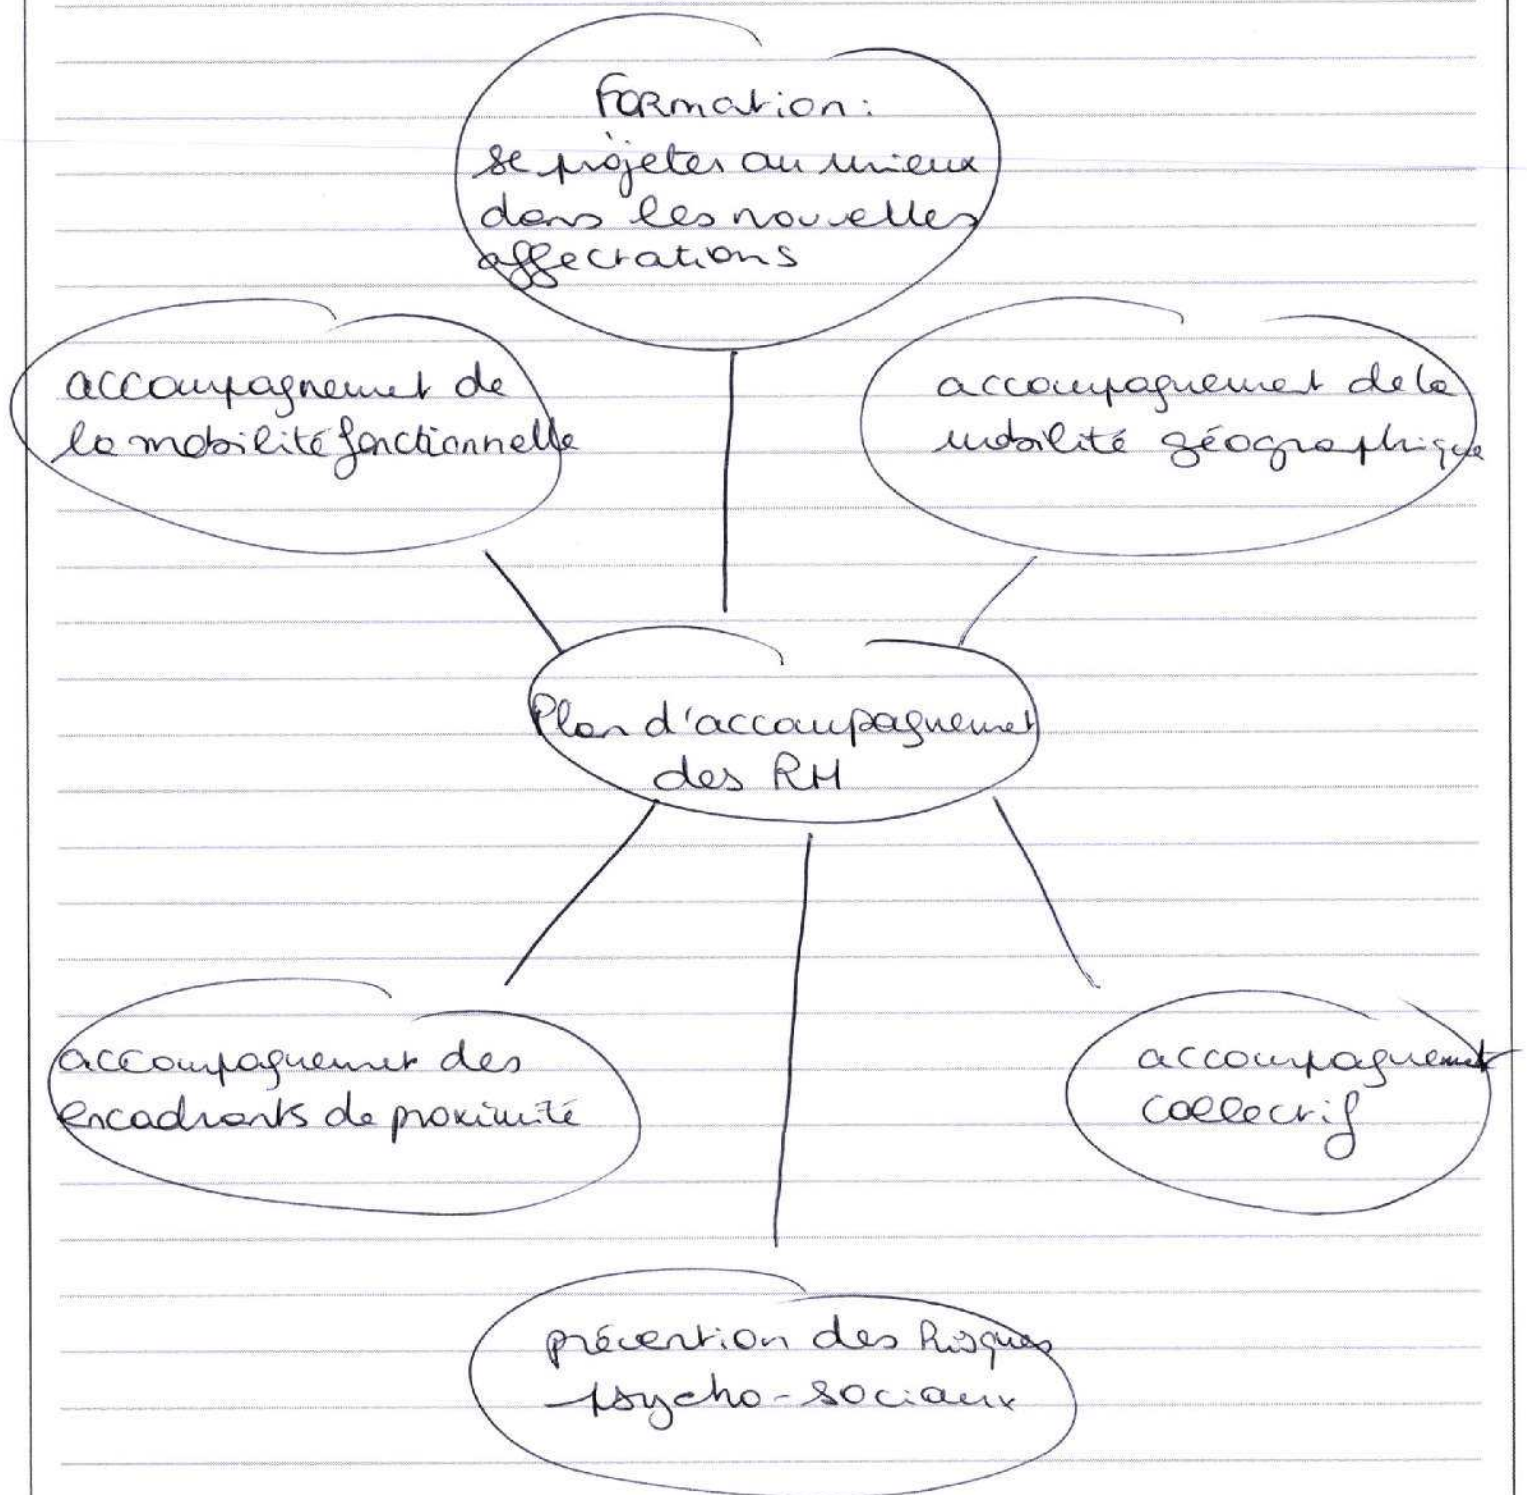 Formation :
se projeter au mieux
dans les nouvelles
affectations
accompagnement de
la mobilité fonctionnelle
accompagnement de la
mobilité géographique
Plan d'accompagnement
des RH
accompagnement des
encadrants de proximité
accompagnement
collectif
prévention des Risques
psycho-sociaux